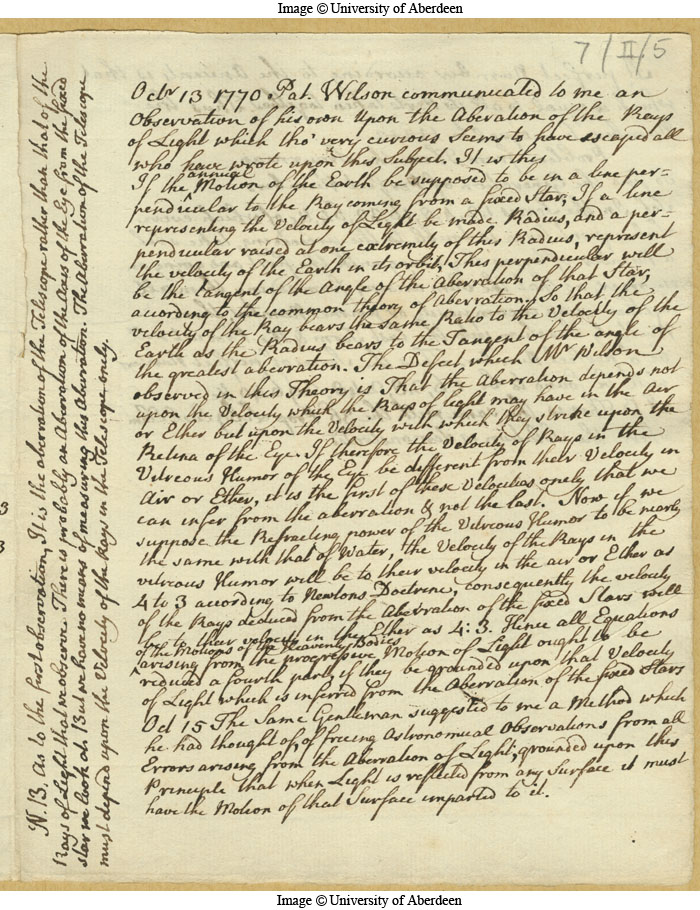 Image © University of Aberdeen
7/II/5
Octr 13 1770 Pat. Wilson communicated to me an
Observation of his own Upon the Aberation of the Rays
of Light which tho' very curious Seems to have escaped all
who have wrote upon this Subject. It is this
annual
If the ^ Motion of the Earth be supposed to be in a line per=
pendicular to the Ray coming from a fixed Star, If a line
representing the Velocity of Light be made Radius, and a per-
pendicular raised at one extremity of this Radius, represent
the velocity of the Earth in its orbit, This perpendicular will
be the tangent of the Angle of the Aberration of that Star,
according to the common theory of Aberration. So that the
velocity of the Ray bears the same Ratio to the Velocity of the
Earth as the Radius bears to the Tangent of the angle of
the greatest aberration. The Defect which Mr Wilson
observed in this Theory is That the Aberration depends not
upon the Velocity which the Rays of light may have in the Air
or Ether but upon the Velocity with which they strike upon the
Retina of the Eye. If therefore the Velocity of Rays in the
Vitreous Humor of the Eye be different from their Velocity in
Air or Ether, it is the first of these Velocitys onely that we
can infer from the aberration & not the last. Now if we
suppose the Refracting power of the Vitreous Humor to be nearly
the same with that of Water, the Velocity of the Rays in the
vitreous Humor will be to their velocity in the air or Ether as
4 to 3 according to Newtons Doctrine, consequently the velocity
of the Rays deduced from the Aberration of the fixed Stars will
be to their velocity in the Ether as 4:3. Hence all Equations
of the Motions of the Heavenly Bodies
^ arising from the progressive Motion of Light ought to be
reduced a fourth part, if they be grounded upon that Velocity
of Light which is inferred from the Aberration of the fixed Stars
Oct 15 The Same Gentleman suggested to me a Method which
he had thought of, of freeing Astronomical Observations from all
Errors arising from the Aberration of Light; grounded upon this
Principle that when Light is reflected from any Surface it must
have the Motion of that Surface imparted to it.
N. 13. As to the first observation, It is the aberration of the Telescope rather than that of the
Rays of Light that we observe. There is probably an Aberration of the Axes of the Eye from the fixed
star we look at But we have no means of measuring this Aberration. The Aberration of the Telescope
must depend upon the Velocity of the Rays in the Telescope onely.
3
3
Image © University of Aberdeen